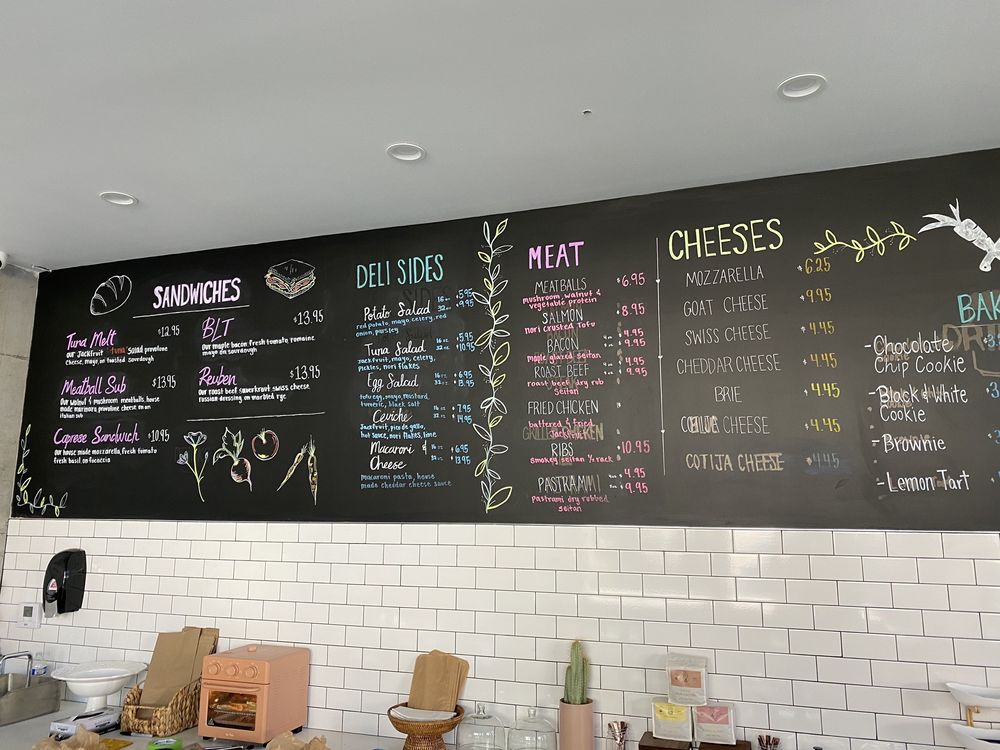 SANDWICHES
Tuna Melt $12.95
our Jackfruit "tuna" salad provolone
cheese, mayo on toasted sourdough
Meatball Sub $13.95
our walnut & mushroom meatballs, house
made marinara provolone cheese on an
italian sub
Caprese Sandwich $10.95
our house made mozzarella, fresh tomato
fresh basil, on focaccia
BLT $13.95
our maple bacon fresh tomato, romaine
mayo on sourdough
Reuben $13.95
our roast beef sauerkraut swiss cheese
russian dressing on marbled rye.
DELI SIDES
Potato Salad 16 oz $5.95
32 oz $9.95
red potato, mayo, celery, red
onion, parsley
Tuna Salad 16 oz $5.95
32 oz $10.95
jackfruit, mayo, celery,
pickles, nori flakes
Egg Salad 16 oz $6.95
32 oz $13.95
tofu egg, mayo, mustard,
turmeric, black salt
Ceviche 16 oz $7.95
32 oz $14.95
Jackfruit, pico de gallo,
hot sauce, nori flakes, lime
Macaroni & 16 oz $6.95
Cheese 32 oz $13.95
macaroni pasta, house
made cheddar cheese sauce
MEAT
MEATBALLS $6.95
mushroom, walnut &
vegetable protein
SALMON $8.95
nori crusted Tofu
BACON $4.95
$9.95
maple glazed seitan
ROAST BEEF $4.95
$9.95
roast beef dry rub
seitan
FRIED CHICKEN
battered & fried
Jackfruit
RIBS $10.95
smokey seitan ½ rack
PASTRAMI $4.95
$9.95
pastrami dry rubbed
seitan
CHEESES
MOZZARELLA $6.25
GOAT CHEESE $9.95
SWISS CHEESE $4.45
CHEDDAR CHEESE $4.45
BRIE $4.45
CHEESE $4.45
COTIJA CHEESE $4.45
BAK
-Chocolate
Chip Cookie
-Black & White
Cookie
-Brownie
-Lemon Tart